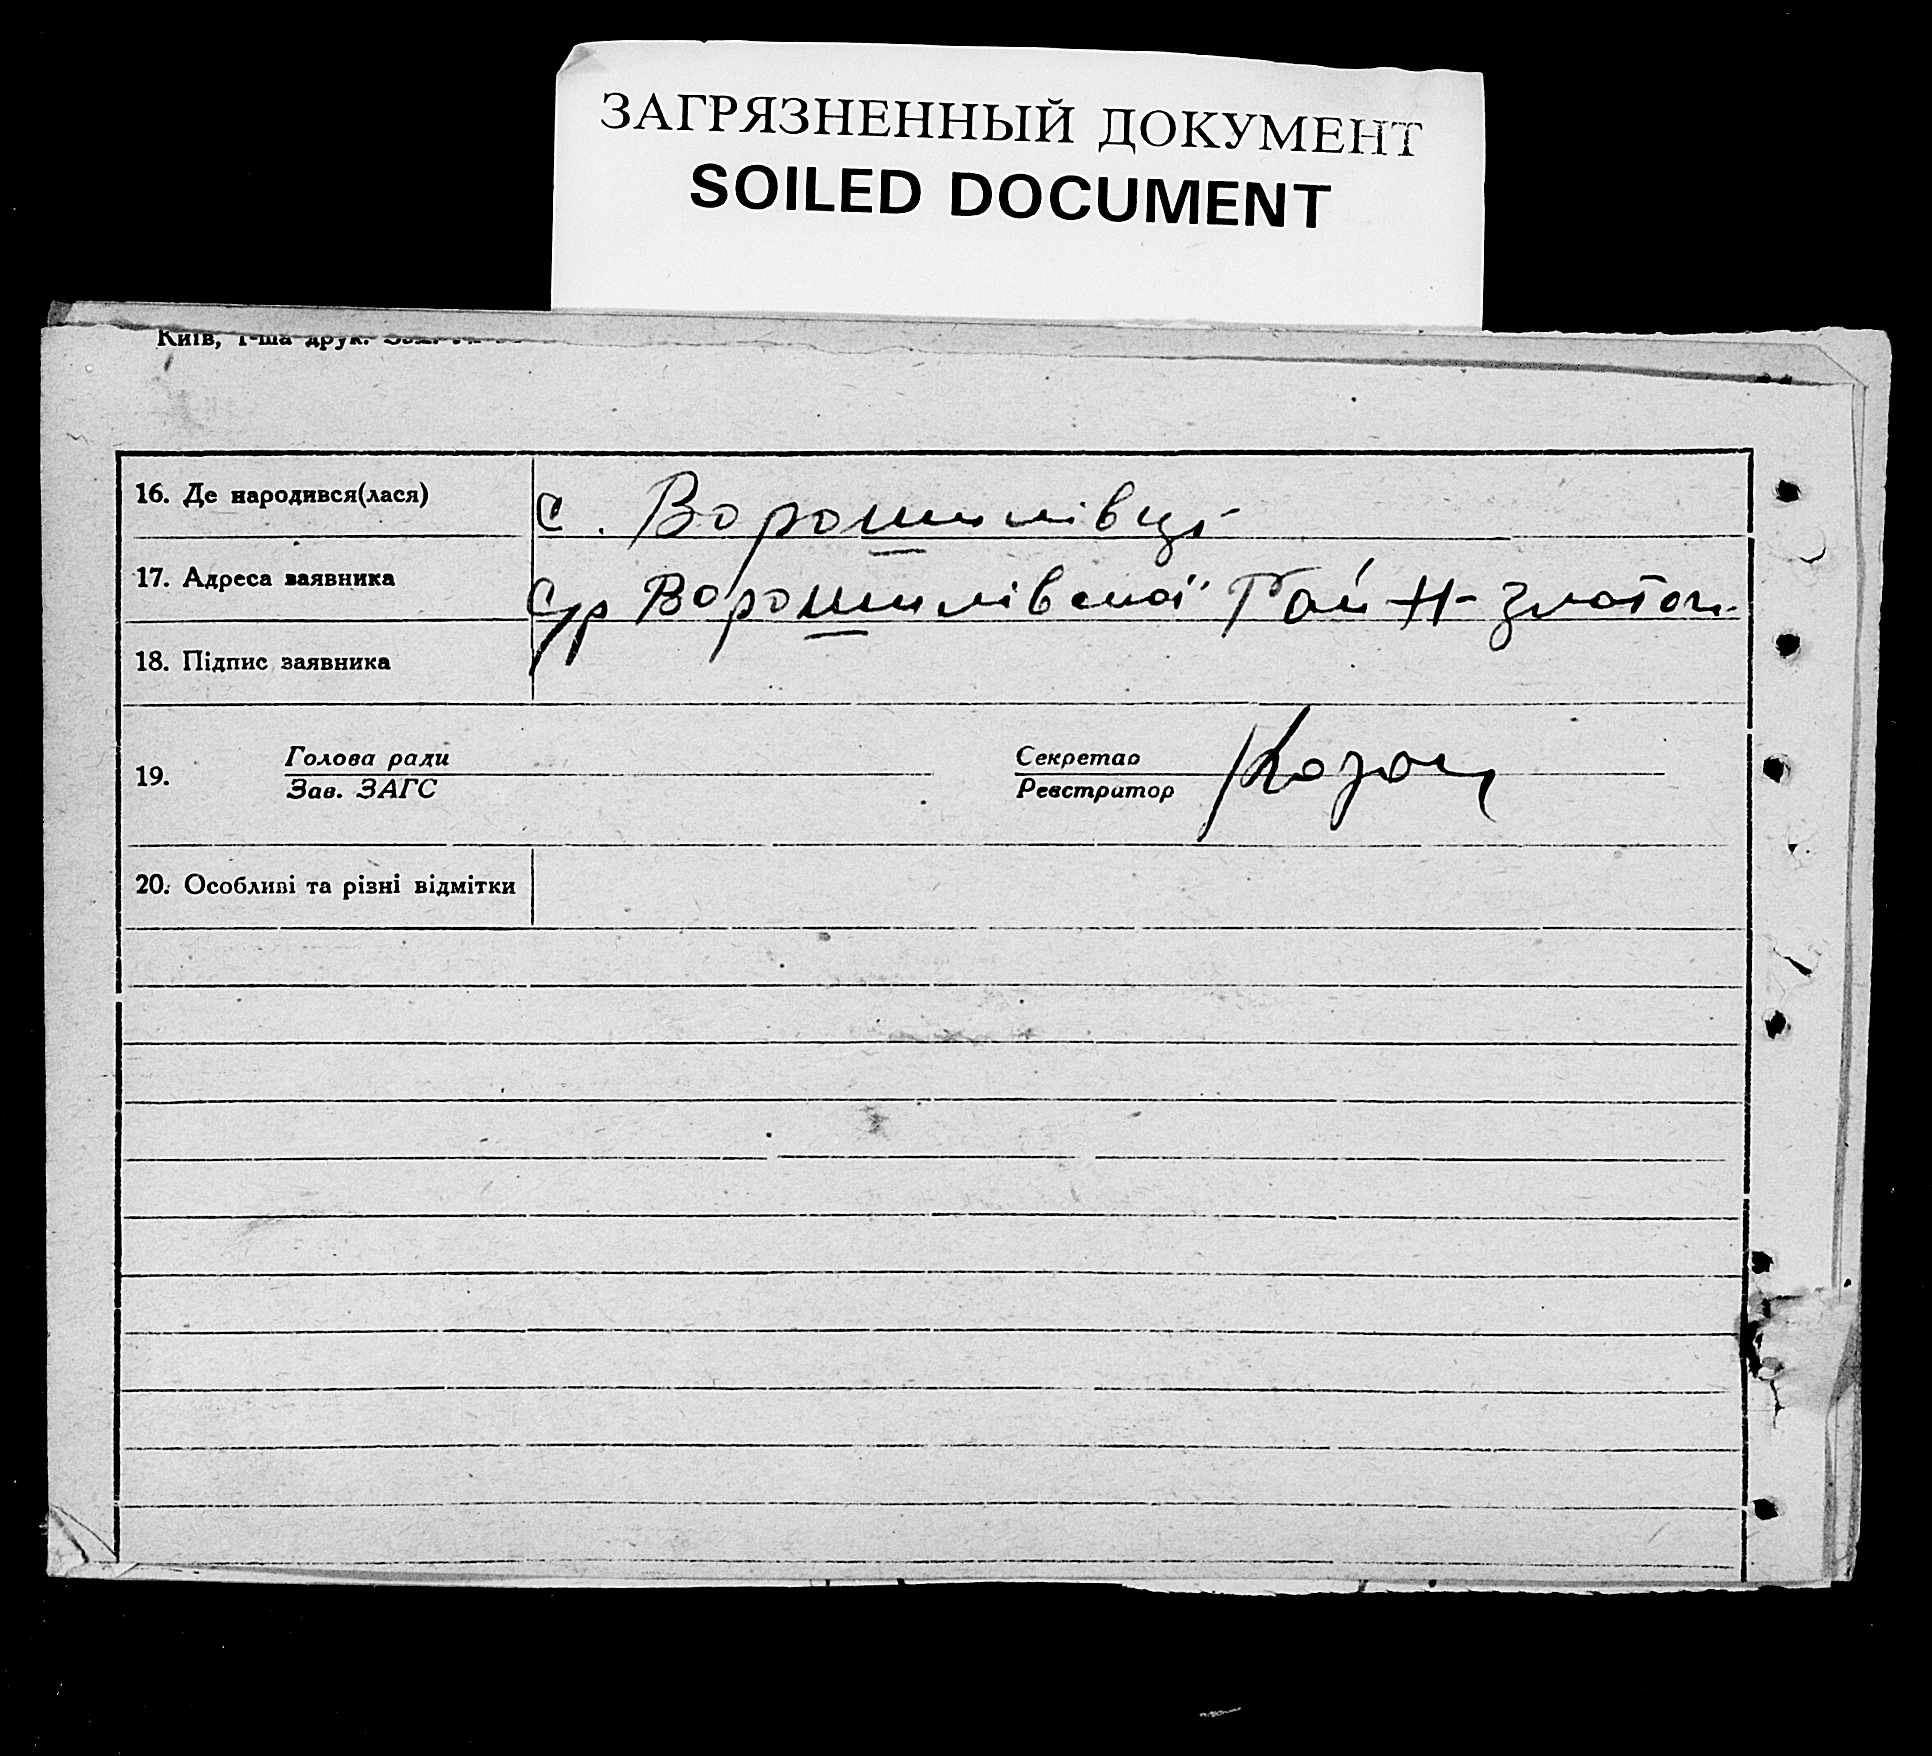 ЗАГРЯЗНЕННЫЙ ДОКУМЕНТ
SOILED DOCUMENT
Київ, 1-ша друк.
16. Де народився(лася) с. Ворошилівці
17. Адреса заявника с/р Ворошилівської Рай Н-Златоп.
18. Підпис заявника
19. Голова ради
Зав. ЗАГС
Секретар
Реєстратор
20. Особливі та різні відмітки